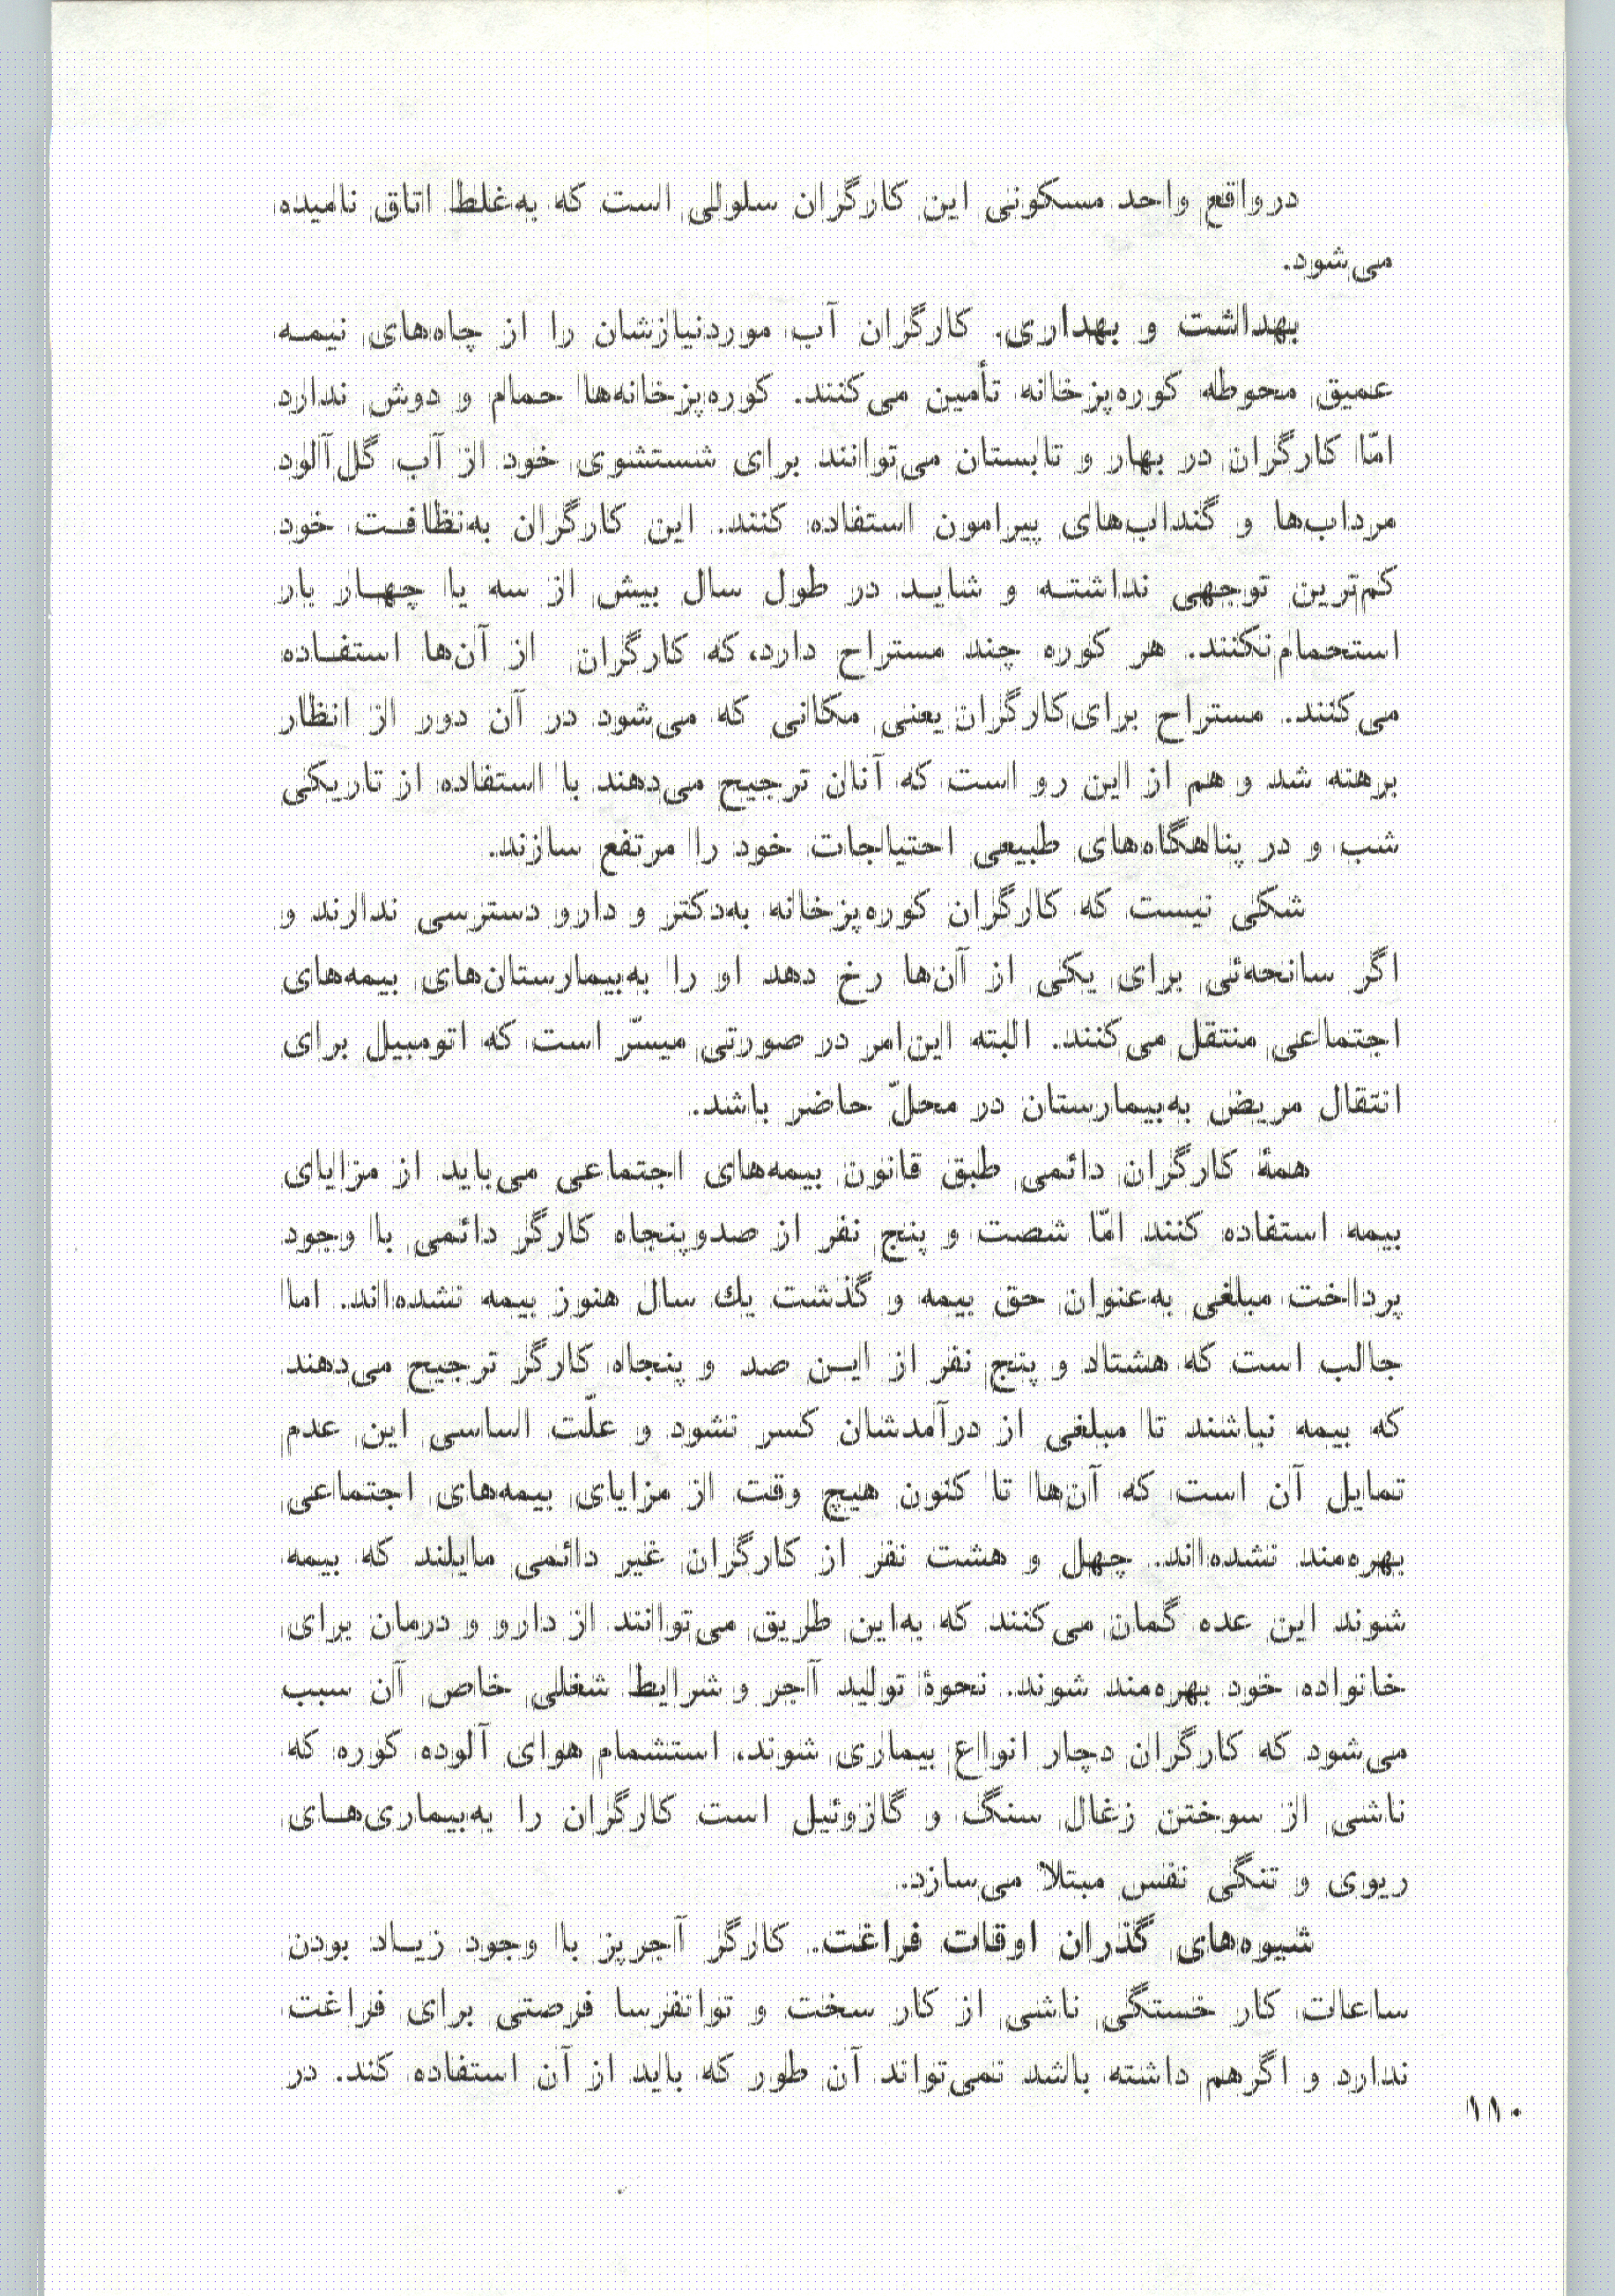 درواقع واحد مسکونی این کارگران سلولی است که به‌غلط اتاق نامیده
می‌شود.
بهداشت و بهداری. کارگران آب موردنیازشان را از چاه‌های نیمـه
عمیق محوطه کوره‌پزخانه تأمین می‌کنند. کوره‌پزخانه‌ها حمام و دوش ندارد
امّا کارگران در بهار و تابستان می‌توانند برای شستشوی خود از آب گل‌آلود
مرداب‌ها و گنداب‌های پیرامون استفاده کنند. این کارگران به‌نظافـت خود
کم‌ترین توجهی نداشتـه و شایـد در طول سال بیش از سه یا چهـار بار
استحمام‌نکنند. هر کوره چند مستراح دارد، که کارگران از آن‌ها استفـاده
می‌کنند. مستراح برای‌کارگران یعنی مکانی که می‌شود در آن دور از انظار
برهنه شد و هم از این رو است که آنان ترجیح می‌دهند با استفاده از تاریکی
شب و در پناهگاه‌های طبیعی احتیاجات خود را مرتفع سازند.
شکی نیست که کارگران کوره‌پزخانه به‌دکتر و دارو دسترسی ندارند و
اگر سانحه‌ئی برای یکی از آن‌ها رخ دهد او را به‌بیمارستان‌های بیمه‌های
اجتماعی منتقل می‌کنند. البته این‌امر در صورتی میسّر است که اتومبیل برای
انتقال مریض به‌بیمارستان در محلّ حاضر باشد.
همهٔ کارگران دائمی طبق قانون بیمه‌های اجتماعی می‌باید از مزایای
بیمه استفاده کنند امّا شصت و پنج نفر از صدوپنجاه کارگر دائمی با وجود
پرداخت مبلغی به‌عنوان حق بیمه و گذشت یك سال هنوز بیمه نشده‌اند. اما
جالب است که هشتاد و پنج نفر از ایـن صد و پنجاه کارگر ترجیح می‌دهند
که بیمه نباشند تا مبلغی از درآمدشان کسر نشود و علّت اساسی این عدم
تمایل آن است که آن‌ها تا کنون هیچ وقت از مزایای بیمه‌های اجتماعی
بهره‌مند نشده‌اند. چهل و هشت نفر از کارگران غیر دائمی مایلند که بیمه
شوند این عده گمان می‌کنند که به‌این طریق می‌توانند از دارو و درمان برای
خانواده خود بهره‌مند شوند. نحوهٔ تولید آجر و شرایط شغلی خاص آن سبب
می‌شود که کارگران دچار انواع بیماری شوند، استشمام هوای آلوده کوره که
ناشی از سوختن زغال سنگ و گازوئیل است کارگران را به‌بیماری‌هـای
ریوی و تنگی نفس مبتلا می‌سازد.
شیوه‌های گذران اوقات فراغت. کارگر آجرپز با وجود زیـاد بودن
ساعات کار خستگی ناشی از کار سخت و توانفرسا فرصتی برای فراغت
ندارد و اگرهم داشته باشد نمی‌تواند آن طور که باید از آن استفاده کند. در
۱۱۰